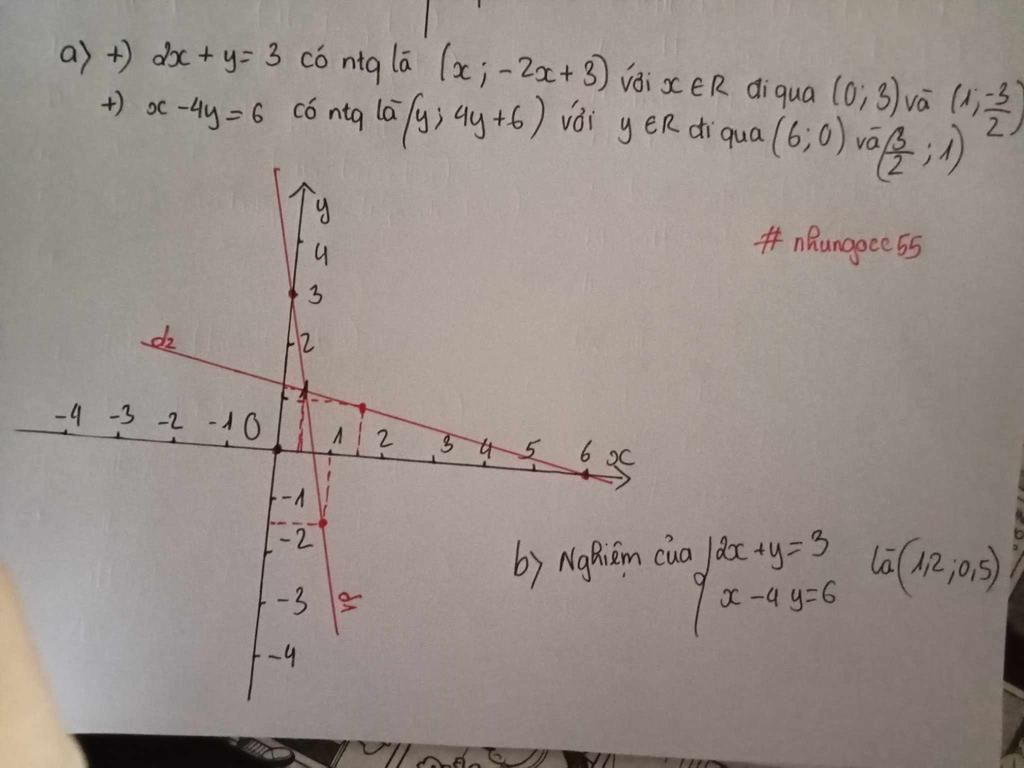 a) +) 2x + y = 3 có ntq là (x ; -2x + 3) với x ∈ R đi qua (0 ; 3) và (1 ; -3/2)
+) x - 4y = 6 có ntq là (y ; 4y + 6) với y ∈ R đi qua (6 ; 0) và (3/2 ; 1)
# nhungocc55
y
4
3
2
d2
1
-4 -3 -2 -1 O 1 2 3 4 5 6 x
-1
-2
-3
-4
b) Nghiệm của { 2x + y = 3 là (1,2 ; 0,5)
x - 4y = 6